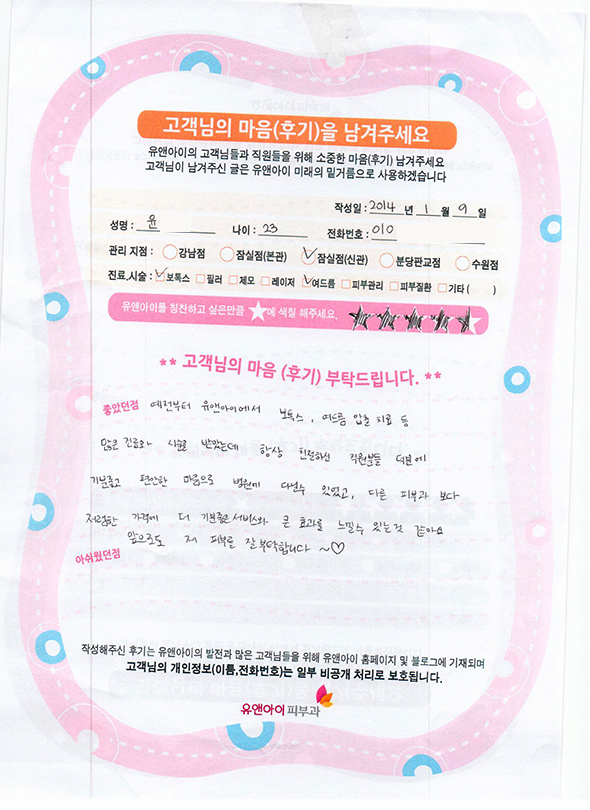 고객님의 마음(후기)을 남겨주세요
유앤아이의 고객님들과 직원들을 위해 소중한 마음(후기) 남겨주세요
고객님이 남겨주신 글은 유앤아이 미래의 밑거름으로 사용하겠습니다
작성일 : 2014 년 1 월 9 일
성명 : 윤 나이 : 23 전화번호 : 010
관리 지점 : 강남점 잠실점(본관) 잠실점(신관) 분당판교점 수원점
진료,시술 : 보톡스 필러 제모 레이저 여드름 피부관리 피부질환 기타 ( )
유앤아이를 칭찬하고 싶은만큼 ★에 색칠 해주세요.
** 고객님의 마음 (후기) 부탁드립니다. **
좋았던점 예전부터 유앤아이에서 보톡스, 여드름 압출 치료 등
많은 진료와 시술을 받았는데 항상 친절하신 직원분들 덕분에
기분좋고 편안한 마음으로 병원에 다닐수 있었고, 다른 피부과 보다
저렴한 가격에 더 기분좋은 서비스와 큰 효과를 느낄수 있는것 같아요
앞으로도 제 피부를 잘 부탁합니다 ~♡
아쉬웠던점
작성해주신 후기는 유앤아이의 발전과 많은 고객님들을 위해 유앤아이 홈페이지 및 블로그에 기재되며
고객님의 개인정보(이름,전화번호)는 일부 비공개 처리로 보호됩니다.
유앤아이 피부과